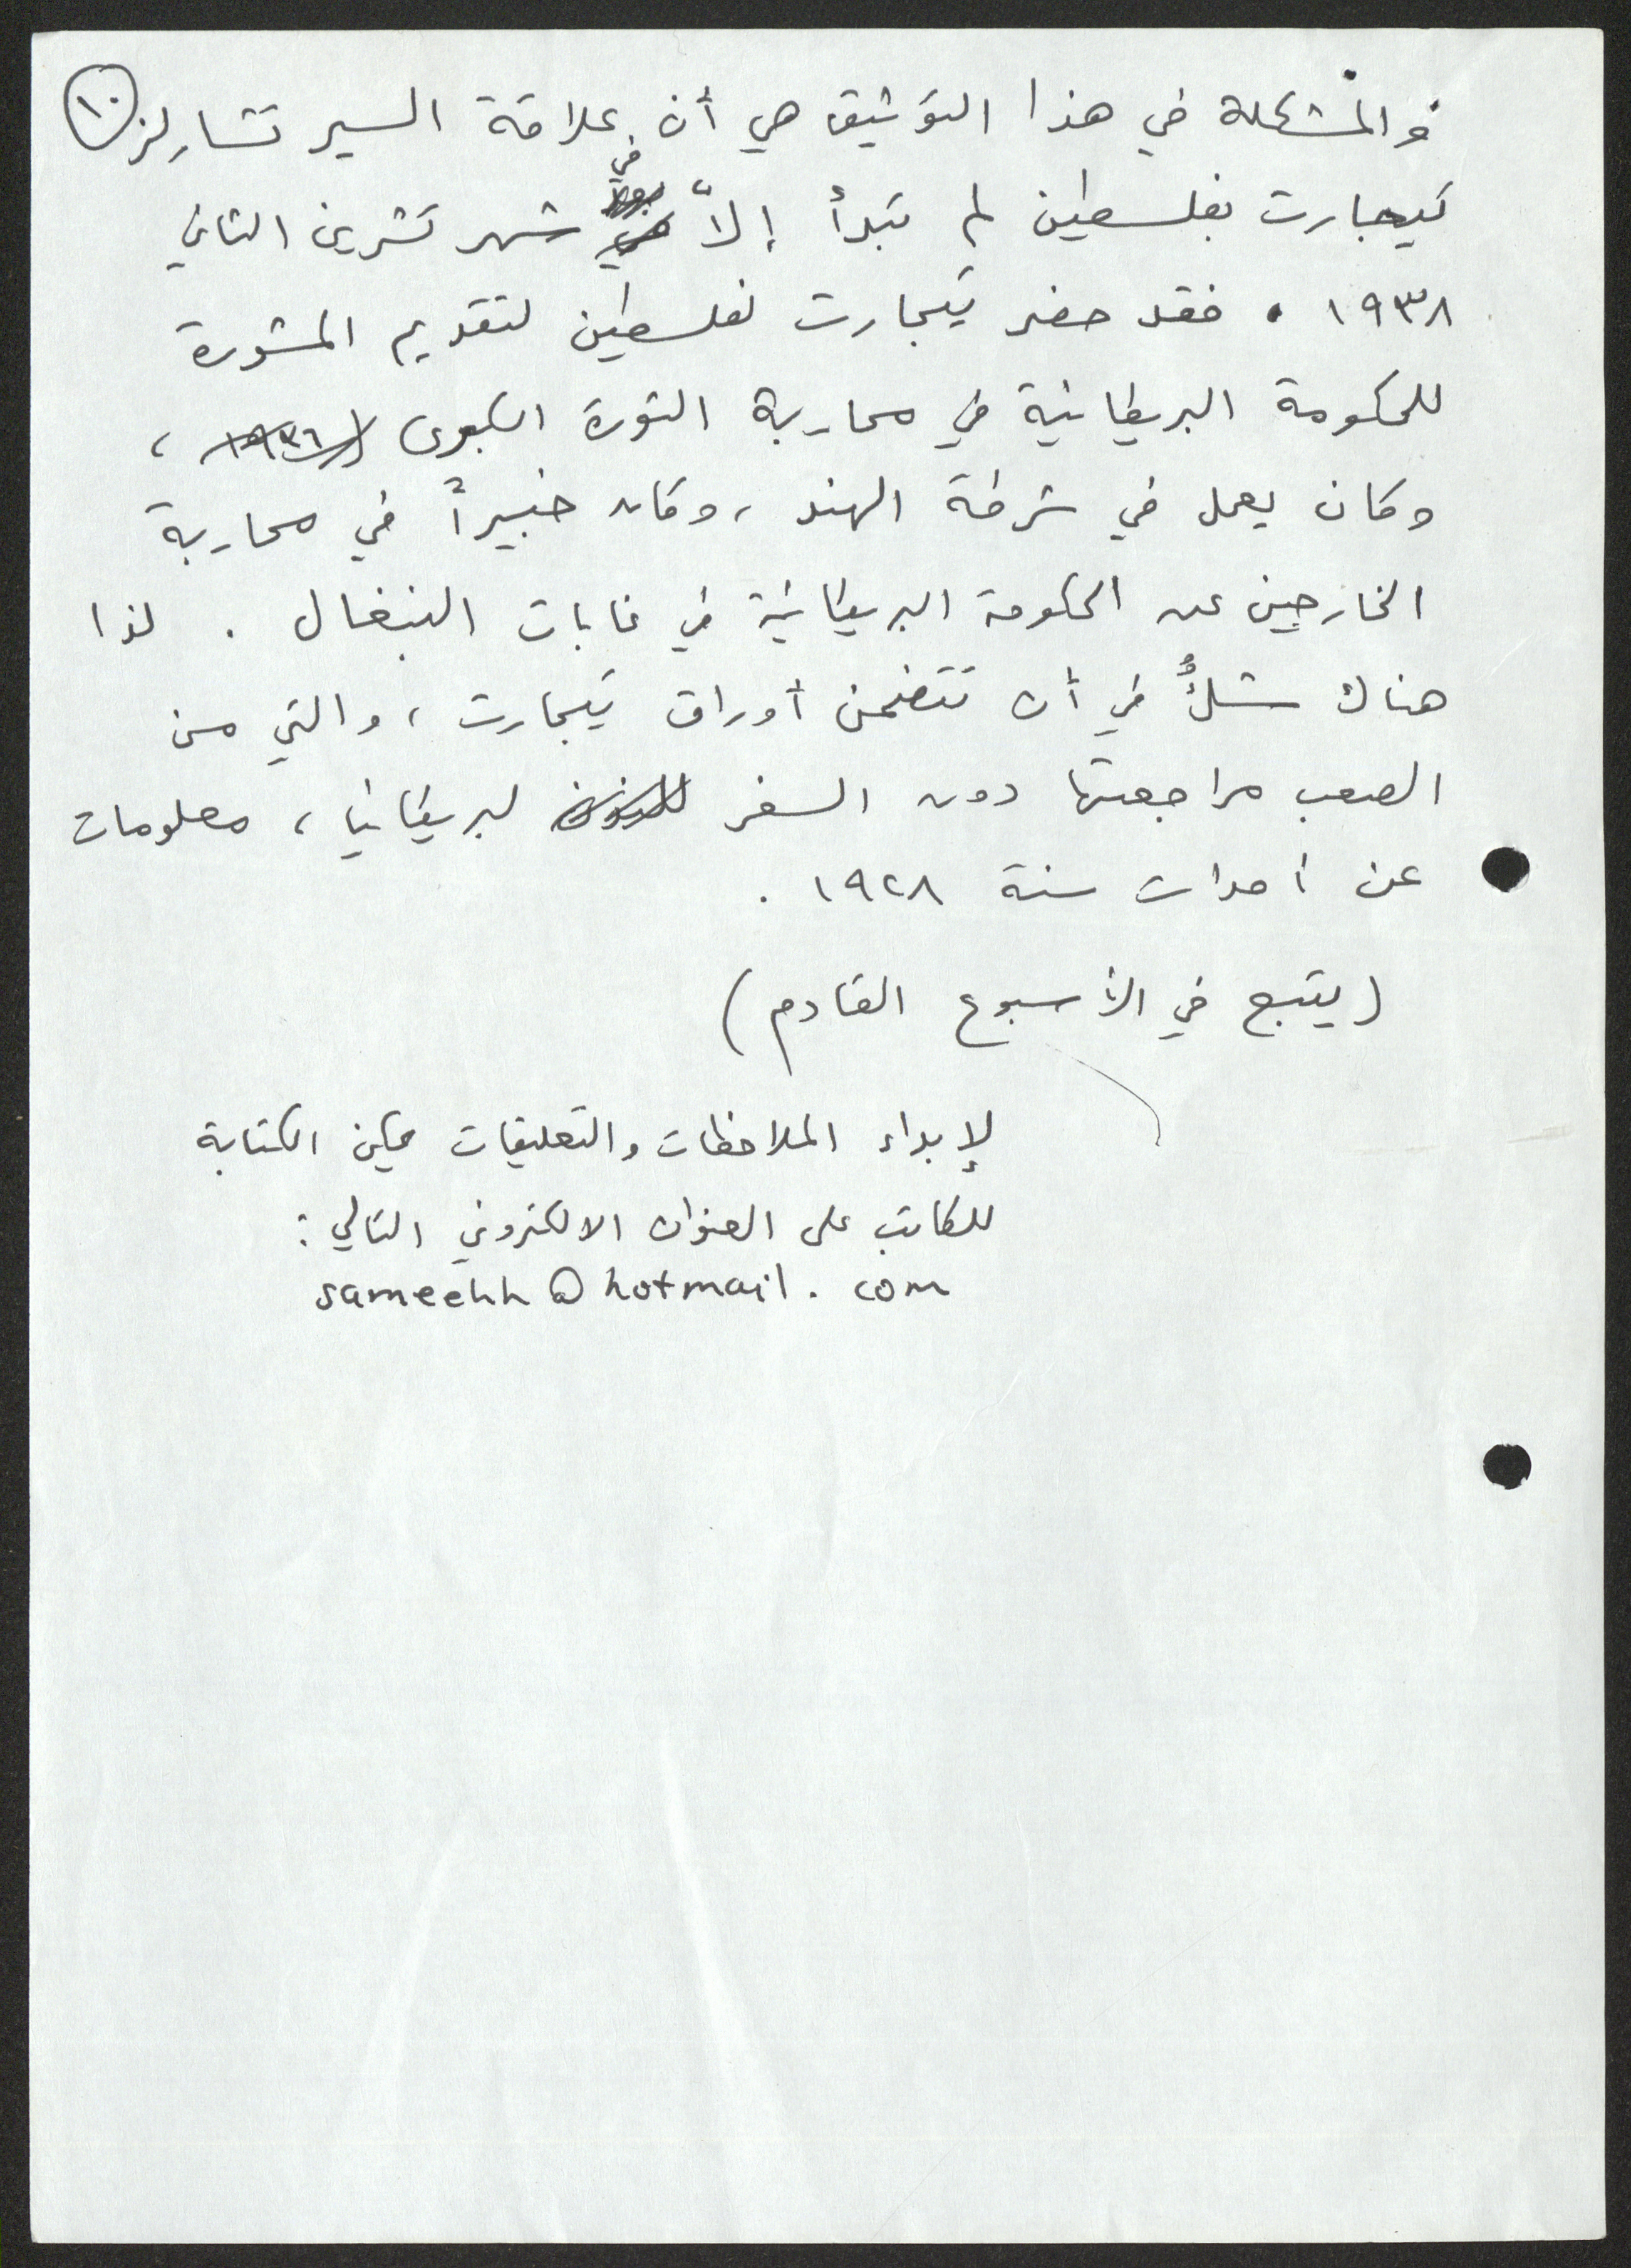 ١٠
والمشكلة في هذا التوثيق هي أن علاقة السير تشارلز
تيجارت بفلسطين لم تبدأ إلاّ في شهر تشرين الثاني
١٩٣٨. فقد حضر تيجارت لفلسطين لتقديم المشورة
للحكومة البريطانية في محاربة الثورة الكبرى ١٩٣٦،
وكان يعمل في شرطة الهند، وكان خبيراً في محاربة
الخارجين عن الحكومة البريطانية في غابات البنغال. لذا
هناك شكٌ في أن تتضمن أوراق تيجارت، والتي من
الصعب مراجعتها دون السفر لبريطانيا، معلومات
عن احداث سنة ١٩٢٨.
(يتبع في الأسبوع القادم)
لإبداء الملاحظات والتعليقات يمكن الكتابة
للكاتب على العنوان الالكتروني التالي:
sameehh@hotmail.com